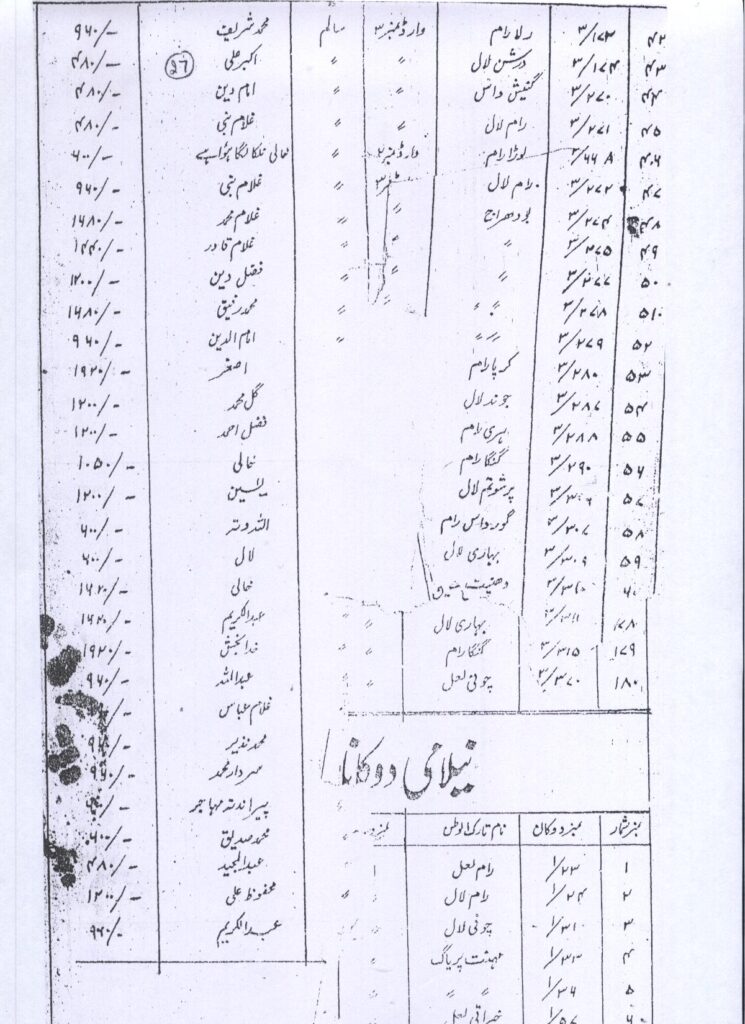 ۴۲ ۳/۱۷۳ رلا رام وارڈ نمبر ۳ سالم محمد شریف ۹۶۰/-
۴۳ ۳/۱۷۴ درشن لال " " اکبر علی ۴۸۰/-
27
۴۴ ۳/۲۷۰ گنیش داس " " امام دین ۴۸۰/-
۴۵ ۳/۲۷۱ رام لال " " غلام نبی ۴۸۰/-
۴۶ لوڑا رام وارڈ نمبر ۲ " خالی نلکا لگا ہوا ہے ۶۰۰/-
۴۷ ۳/۲۷۲ رام لال " غلام نبی ۹۶۰/-
۴۸ ۳/۲۷۴ بودھراج " " غلام محمد ۱۶۸۰/-
۴۹ ۳/۲۷۵ " " " غلام قادر ۱۴۴۰/-
۵۰ ۳/۲۷۷ " " " فضل دین ۱۲۰۰/-
۵۱ ۳/۲۷۸ " " " محمد رفیق ۱۶۸۰/-
۵۲ ۳/۲۷۹ " " امام الدین ۹۶۰/-
۵۳ ۳/۲۸۰ کرپا رام اصغر ۱۹۲۰/-
۵۴ ۳/۲۸۶ جوند لال گل محمد ۱۲۰۰/-
۵۵ ۳/۲۸۸ ہری رام فضل احمد ۱۲۰۰/-
۵۶ ۳/۲۹۰ گنگا رام خالی ۱۰۵۰/-
۵۷ ۳/۳۰۶ پرشوتم لال یٰسین ۱۲۰۰/-
۵۸ ۳/۳۰۷ گورداس رام اللہ دتہ ۶۰۰/-
۵۹ ۳/۳۰۹ بہاری لال لال ۶۰۰/-
۶۰ ۳/۳۱۰ خالی ۱۶۲۰/-
۱۷۸ ۳/۳۱۱ بہاری لال " " عبدالکریم ۱۶۲۰/-
۱۷۹ ۳/۳۱۵ گنگا رام " " خدا بخش ۱۹۲۰/-
۱۸۰ ۳/۳۷۰ چونی لعل " " عبداللہ ۹۶۰/-
غلام عباس
محمد نذیر
سردار محمد ۹۶۰/-
پیراندتہ مہاجر
محمد صدیق ۶۰۰/-
عبدالمجید ۴۸۰/-
محفوظ علی ۱۲۰۰/-
عبدالکریم ۹۶۰/-
نیلامی دوکانا
نمبر شمار نمبر دوکان نام تارک الوطن نمبر
۱ ۱/۲۳ رام لعل
۲ ۱/۲۴ رام لال "
۳ ۱/۳۱ چونی لال
۴ ۱/۳۳ مہنت پریاگ
۵ ۱/۳۶ " "
۶ ۱/۵۷ خیراتی لعل